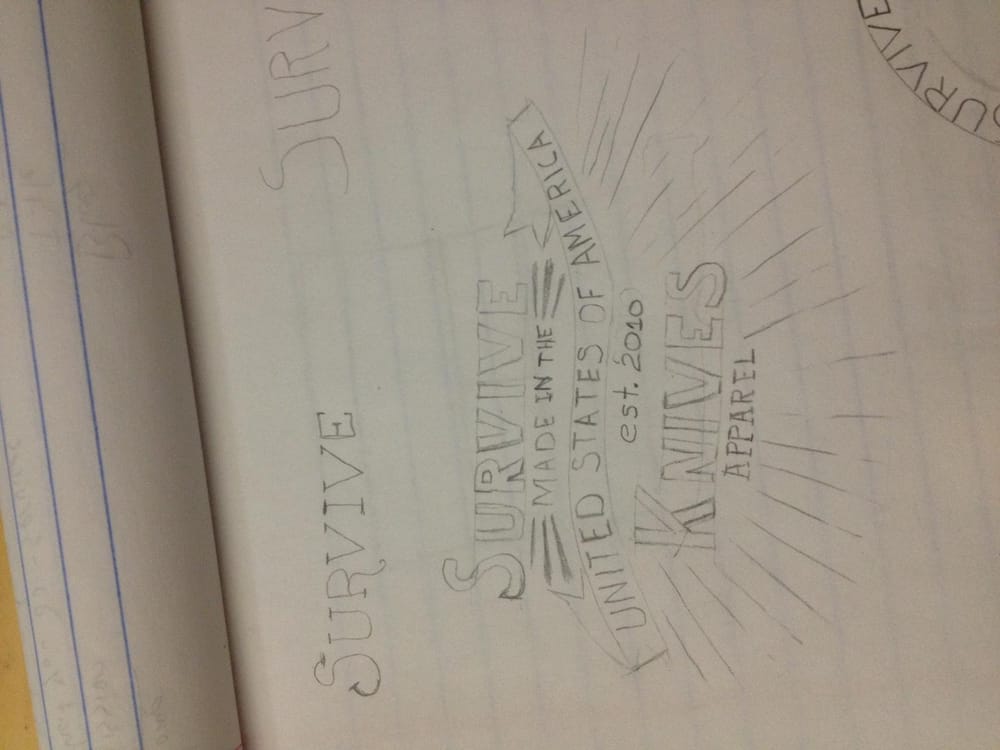 SURV
SURVIVE
SURVIVE
SURVIVE
MADE IN THE
UNITED STATES OF AMERICA
est. 2010
KNIVES
APPAREL